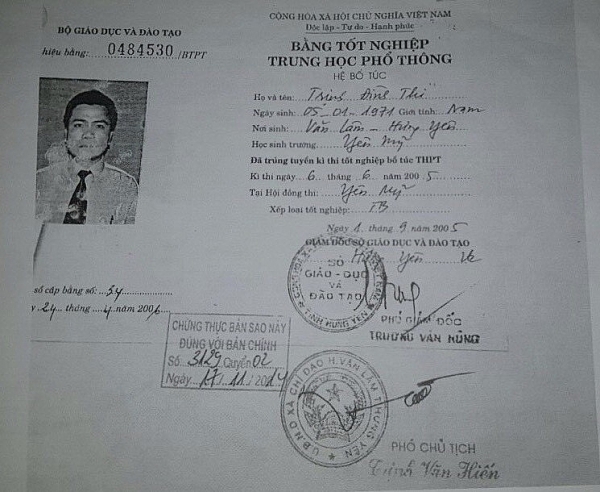 BỘ GIÁO DỤC VÀ ĐÀO TẠO
hiệu bằng: 0484530 /BTPT
số cấp bằng số: 54
24 tháng 4 năm 2006
CỘNG HÒA XÃ HỘI CHỦ NGHĨA VIỆT NAM
Độc lập - Tự do - Hạnh phúc
BẰNG TỐT NGHIỆP
TRUNG HỌC PHỔ THÔNG
HỆ BỔ TÚC
Họ và tên: Trịnh Đình Thi
Ngày sinh: 05-01-1971 Giới tính: Nam
Nơi sinh: Văn Lâm - Hưng Yên
Học sinh trường: Yên Mỹ
Đã trúng tuyển kì thi tốt nghiệp bổ túc THPT
Kì thi ngày 6 tháng 6 năm 2005
Tại Hội đồng thi: Yên Mỹ
Xếp loại tốt nghiệp: TB
Ngày 1 tháng 9 năm 2005
GIÁM ĐỐC SỞ GIÁO DỤC VÀ ĐÀO TẠO
Hưng Yên
SỞ
GIÁO - DỤC
VÀ
ĐÀO TẠO
TỈNH HƯNG YÊN
PHÓ GIÁM ĐỐC
TRƯƠNG VĂN HÙNG
CHỨNG THỰC BẢN SAO NÀY
ĐÚNG VỚI BẢN CHÍNH
Số: 3129 Quyển 02
Ngày 17 / 11 / 2014
U.B.N.D XÃ CHỈ ĐẠO H.VĂN LÂM T.HƯNG YÊN
PHÓ CHỦ TỊCH
Trịnh Văn Hiến